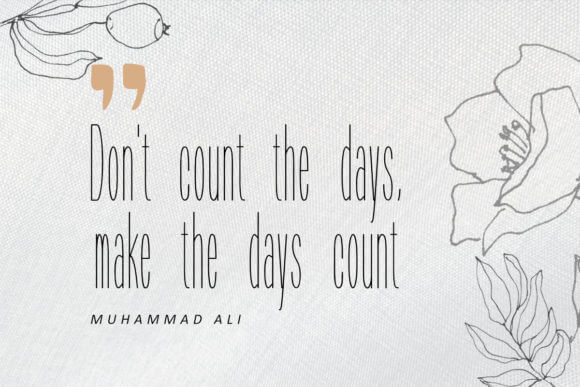 ”
Don't count the days,
make the days count
MUHAMMAD ALI